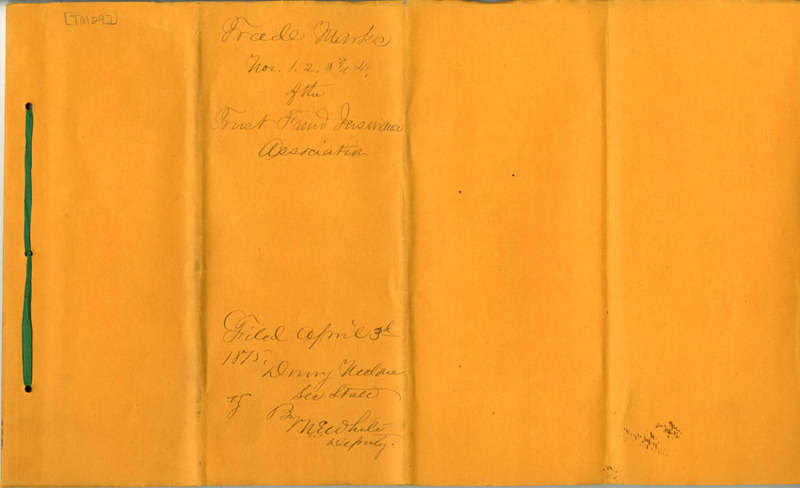 [TM292]
Trade Marks
Nos. 1. 2. 3 & 4.
of the
Trust Fund Insurance
Association
Filed April 3d
1875.
Drury Melone
Sec State
of
By
Deputy.